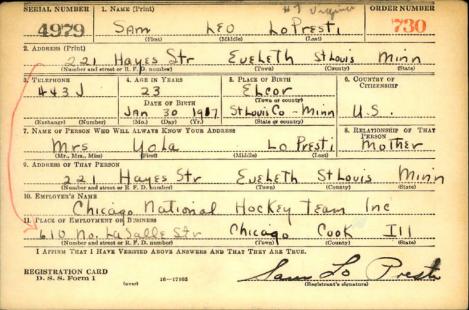 SERIAL NUMBER 1. NAME (Print) #9 Virginia ORDER NUMBER
4979 Sam Leo LoPresti 730
(First) (Middle) (Last)
2. ADDRESS (Print)
221 Hayes Str Eveleth St Louis Minn
(Number and street or R. F. D. number) (Town) (County) (State)
3. TELEPHONE 4. AGE IN YEARS 5. PLACE OF BIRTH 6. COUNTRY OF CITIZENSHIP
443 J 23 Elcor
DATE OF BIRTH (Town or county)
Jan 30 1917 St Louis Co - Minn U.S.
(Exchange) (Number) (Mo.) (Day) (Yr.) (State or country)
7. NAME OF PERSON WHO WILL ALWAYS KNOW YOUR ADDRESS 8. RELATIONSHIP OF THAT PERSON
Mrs Yola Lo Presti Mother
(Mr., Mrs., Miss) (First) (Middle) (Last)
9. ADDRESS OF THAT PERSON
221 Hayes Str Eveleth St Louis Minn
(Number and street or R. F. D. number) (Town) (County) (State)
10. EMPLOYER'S NAME
Chicago National Hockey Team Inc
11. PLACE OF EMPLOYMENT OR BUSINESS
610 No. LaSalle Str Chicago Cook Ill
(Number and street or R. F. D. number) (Town) (County) (State)
I AFFIRM THAT I HAVE VERIFIED ABOVE ANSWERS AND THAT THEY ARE TRUE.
REGISTRATION CARD
D. S. S. Form 1 16-17105 Sam Lo Presti
(Registrant's signature)